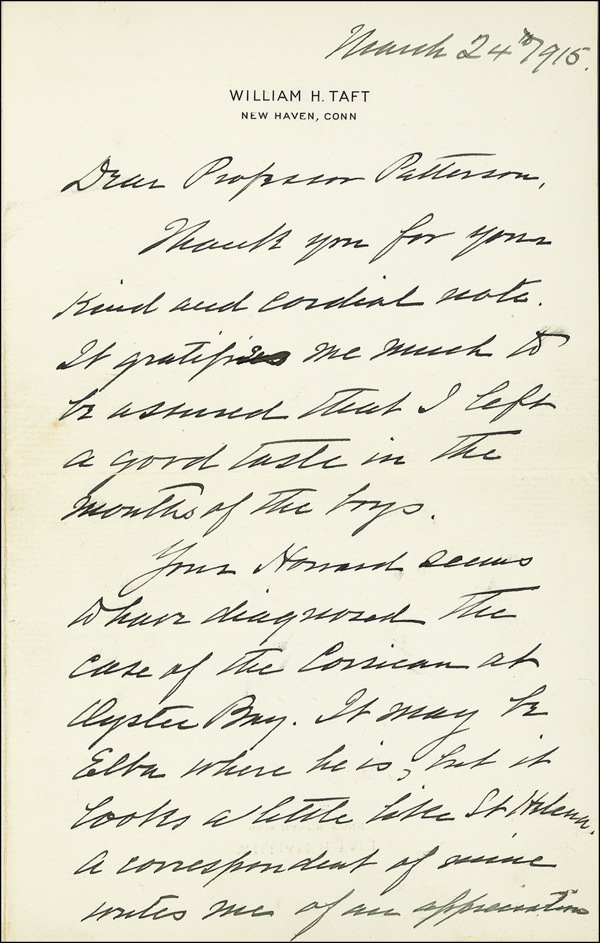 March 24th 1915.
WILLIAM H. TAFT
NEW HAVEN, CONN
Dear Professor Patterson,
Thank you for your
kind and cordial note.
It gratifies me much to
be assured that I left
a good taste in the
mouths of the boys.
Your Howard seems
to have diagnosed the
case of the Corsican at
Oyster Bay. It may be
Elba where he is, but it
looks a little like St Helena.
A correspondent of mine
writes me of an appreciation